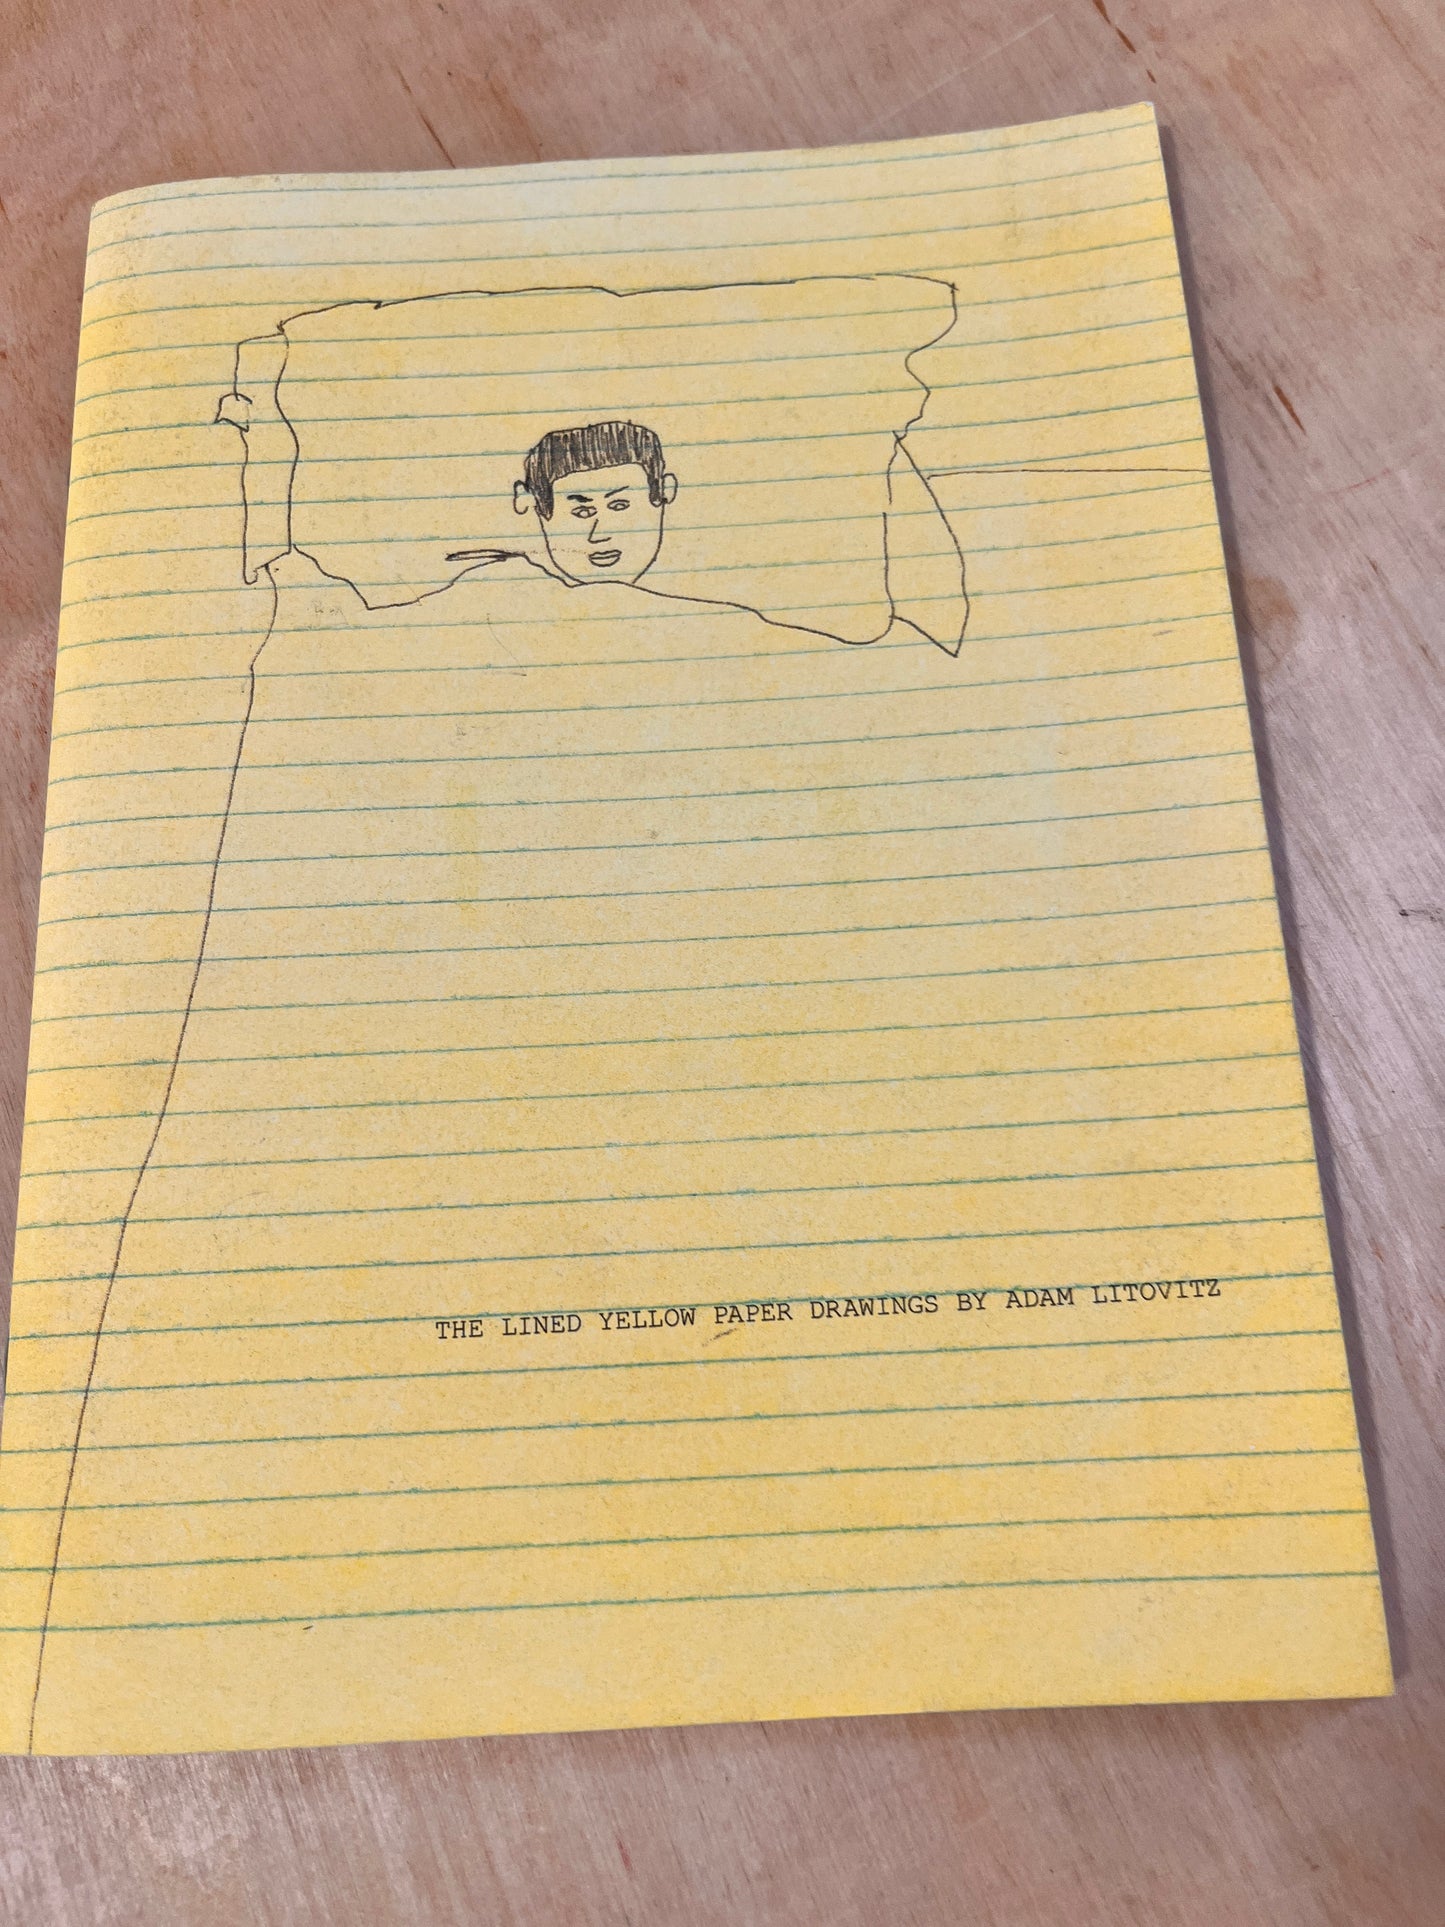 THE LINED YELLOW PAPER DRAWINGS BY ADAM LITOVITZ